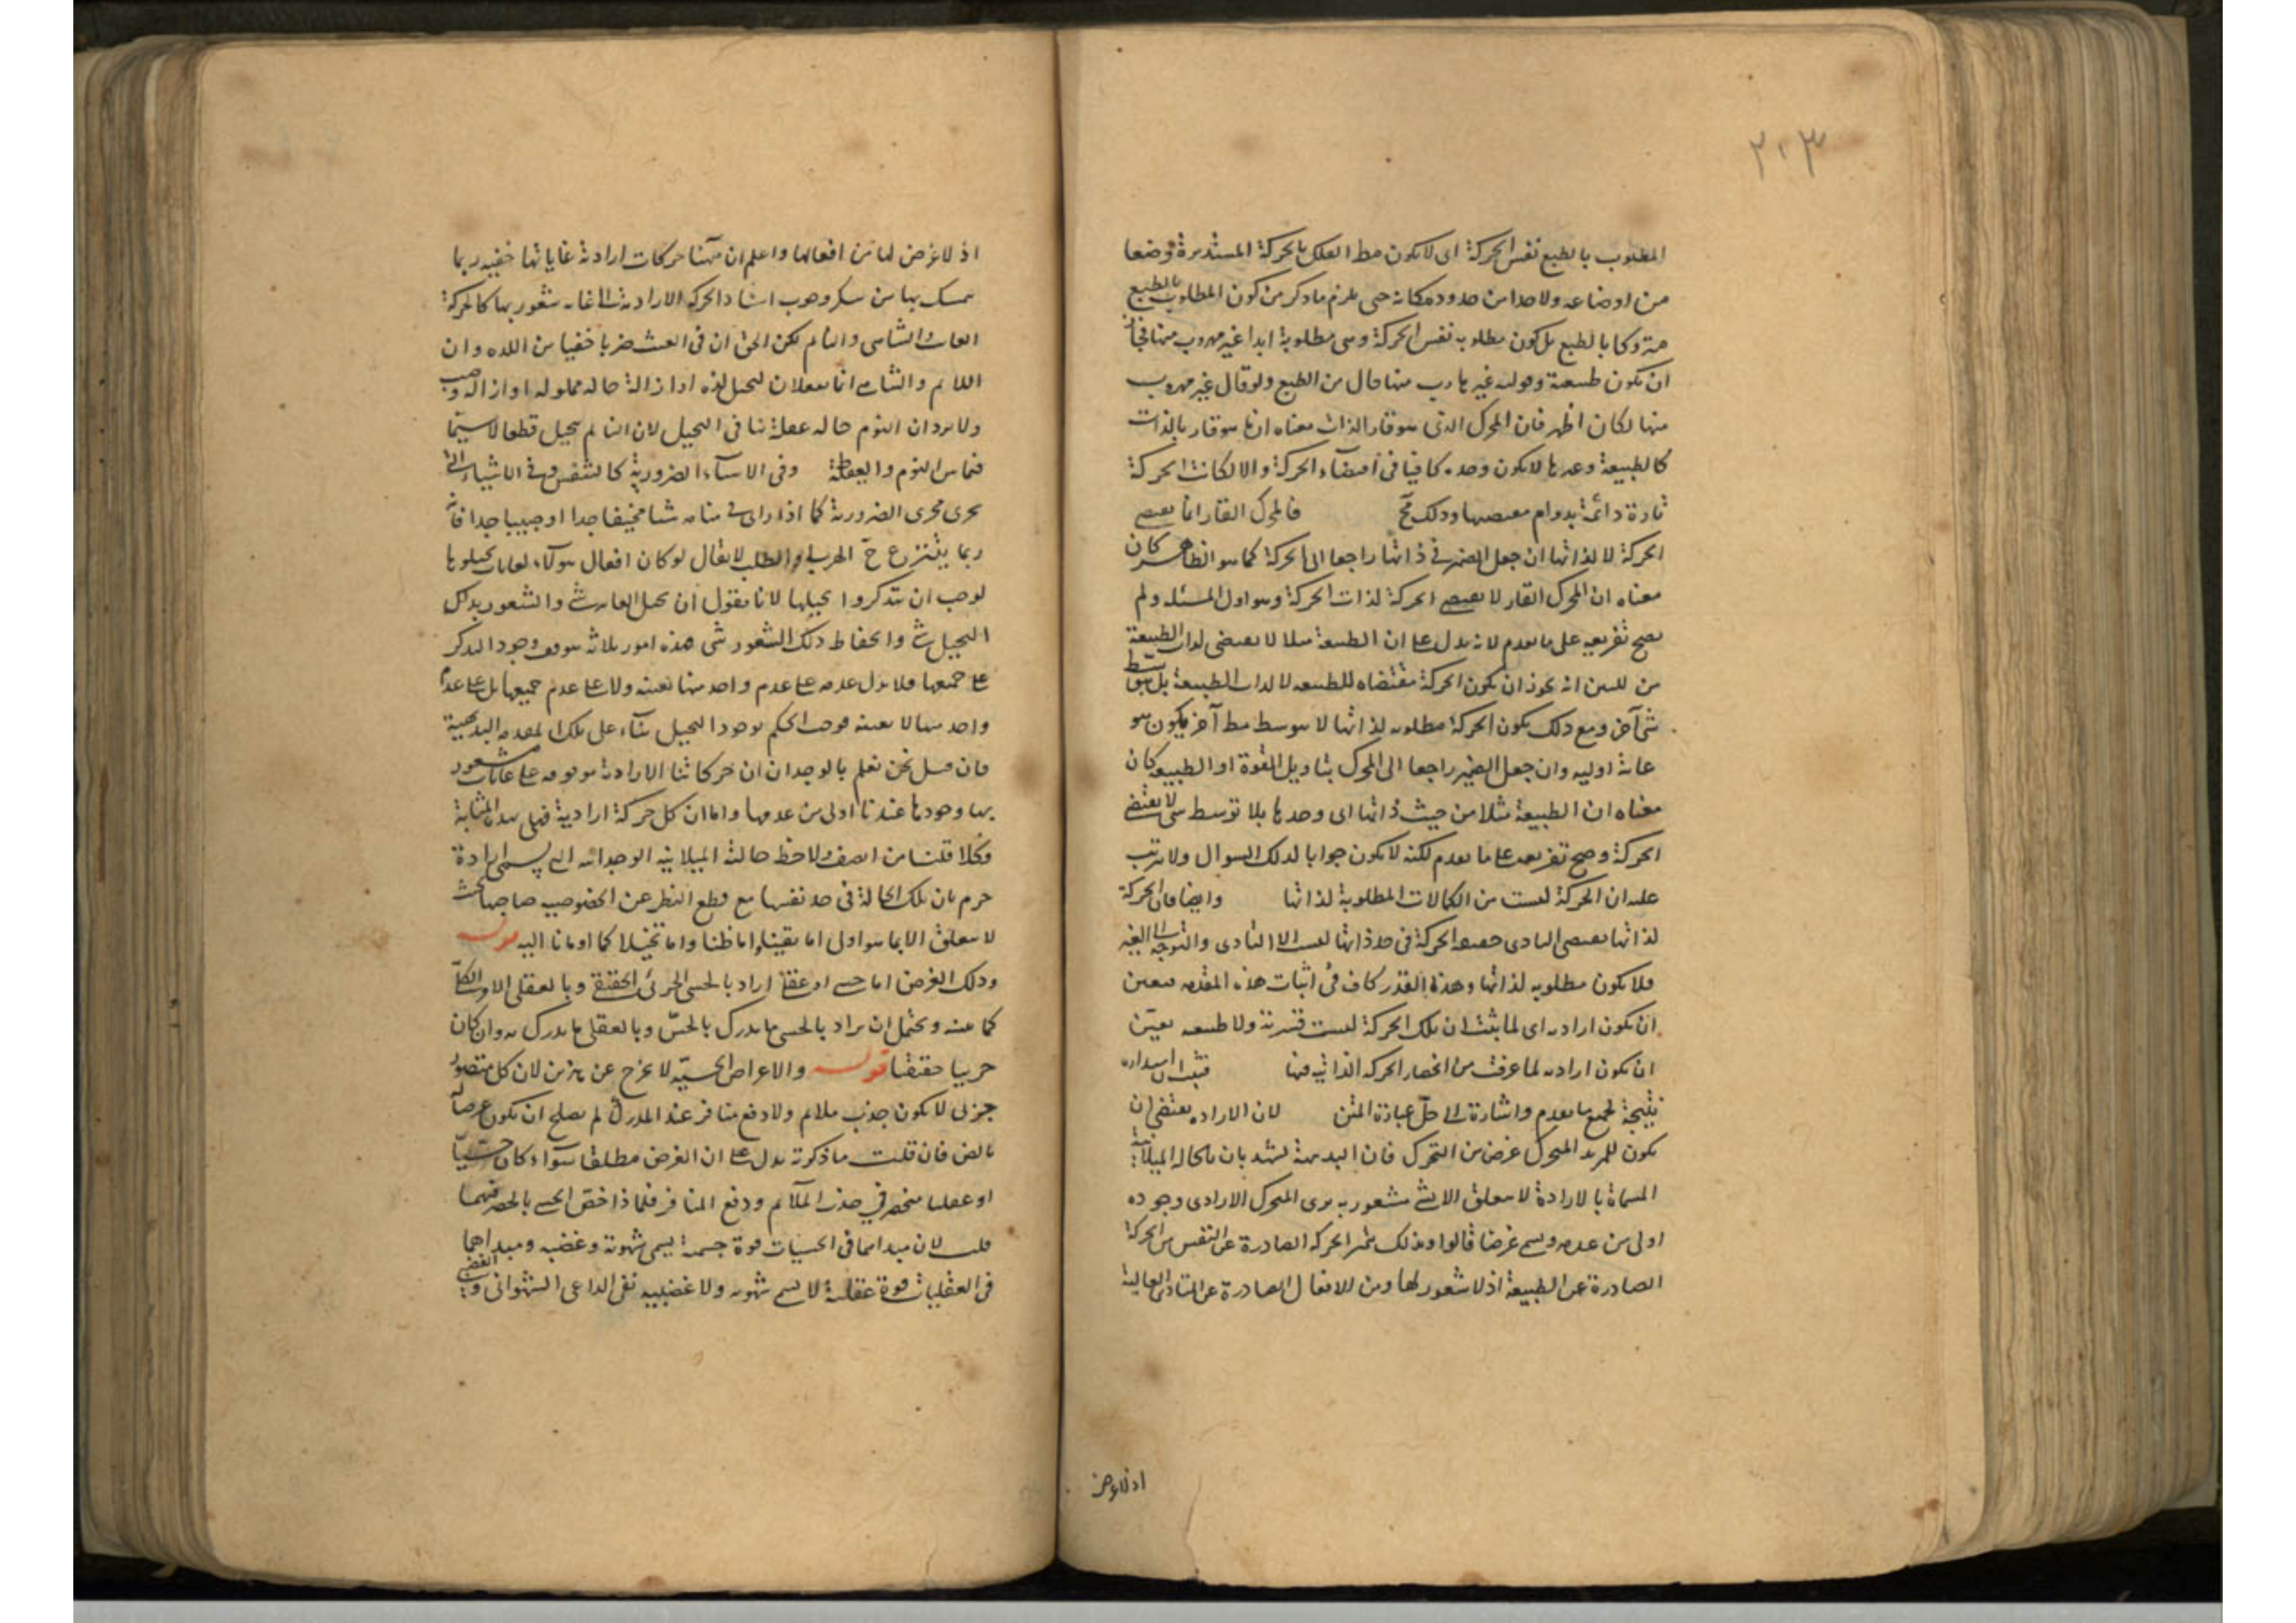 ٢٠٣
المطلوب بالطبع نفس الحركة اى لا يكون مط الفلك بالحركة المستديرة وضعا
من اوضاعه ولا حدا من حدود مكانه حتى يلزم ما ذكر من كون المطلوب بالطبع
متروكا بالطبع بل يكون مطلوبه نفس الحركة وهى مطلوبة ابدا غير مهروب منها فجاز
ان يكون طبيعة وقوله غير هارب منها حال من الطبع ولو قال غير مهروب
منها لكان اظهر فان المحرك الذى هو قار الذات معناه انها هو قار بالذات
كالطبيعة وغيرها لا يكون وحده كافيا فى اقتضاء الحركة والا لكانت الحركة
قارة دائمة بدوام مقتضيها وذلك مح فالمحرك القار انما يقتضى
الحركة لا لذاتها ان جعل الضمير فى ذاتها راجعا الى الحركة كما هو الظاهر كان
معناه ان المحرك القار لا يقتضى الحركة لذات الحركة وهو اول المسئلة ولم
يصح تفريعه على ما تقدم لانه يدل على ان الطبيعة مثلا لا يقتضى لذات الطبيعة
من البين انه يجوز ان يكون الحركة مقتضاة للطبيعة لا لذات الطبيعة بل بتوسط
شئ آخر ومع ذلك يكون الحركة مطلوبه لذاتها لا بتوسط مط آخر فيكون هو
غاية اوليه وان جعل الضمير راجعا الى المحرك بتاويل القوة او الطبيعة كان
معناه ان الطبيعة مثلا من حيث ذاتها اى وحدها بلا توسط شئ لا يقتضى
الحركة وصح تفريعه على ما تقدم لكنه لا يكون جوابا لذلك السوال ولا يترتب
عليه ان الحركة ليست من الكمالات المطلوبة لذاتها وايضا فان الحركة
لذاتها يقتضى التادى حقيقة الحركة فى حد ذاتها ليست الا التادى والتوجه الى الغير
فلا يكون مطلوبه لذاتها وهذا القدر كاف فى اثبات هذه المقدمه فتعين
ان يكون اراديه اى لما ثبت ان تلك الحركة ليست قسرية ولا طبيعيه تعين
ان يكون اراديه لما عرفت من انحصار الحركه الذاتيه فيها فثبت ان
نتيجة لجميع ما تقدم واشارة الى حل عبارة المتن لان الاراده يقتضى ان
يكون للمريد المتحرك غرض من التحرك فان البديهة تشهد بان الحالة الميلانية
المسماة بالارادة لا يتعلق الا بشئ مشعور به يرى المتحرك الارادى وجوده
اولى من عدمه ويسمى غرضا قالوا وبذلك يتميز الحركه الصادرة عن النفس من الحركة
الصادرة عن الطبيعة اذ لا شعور لها ومن الافعال الصادرة عن المبادى العالية
اذ لا غرض
اذ لا غرض لها من افعالها واعلم ان ههنا حركات ارادية غاياتها خفيه ربما
يتمسك بها من ينكر وجوب استناد الحركه الارادية الى غاية مشعور بها كالحركة
العابث والساهى والنائم لكن الحق ان فى العبث ضربا خفيا من اللذه وان
النائم والساهى انما يفعلان لتخيل لذه او ازالة حالة مملوله او ازالة وصب
ولا يرد ان النوم حاله غفلة تنافى التخيل لان النائم يتخيل قطعا لا سيما
فيما بين النوم واليقظة وفى الاشياء الضرورية كالتنفس وفى الاشياء التى
يجرى مجرى الضرورية كما اذا راى فى منامه شيئا مخيفا جدا او حبيبا جدا فانه
ربما ينزعج ح الهرب او الطلب لا يقال لو كان افعال هؤلاء لغايات تخيلوها
لوجب ان يتذكروا تخيلها لانا نقول ان تخيل الغاية شئ والشعور بذلك
التخيل شئ وانحفاظ ذلك الشعور شئ هذه امور ثلاثة يتوقف وجود التذكر
على جميعها فلا يدل عدمه على عدم واحد منها بعينه ولا على عدم جميعها بل على عدم
واحد منها لا بعينه فوجب الحكم بوجود التخيل بناء على تلك المقدمه البديهية
فان قيل نحن نعلم بالوجدان ان حركاتنا الارادية موقوفه على غايات مشعور
بها وجودها عندنا اولى من عدمها واما ان كل حركة ارادية فهى بهذه المثابة
فكلا قلنا من انصف ولاحظ حالته الميلانيه الوجدانيه التى يسمى ارادة
جزم بان تلك الحالة فى حد نفسها مع قطع النظر عن الخصوصيه صاحبها بحيث
لا يتعلق الا بما هو اولى اما يقينا واما ظنا واما تخيلا كما اومانا اليه قوله
وذلك الغرض اما حسى او عقلى اراد بالحسى الجزئى الحقيقى وبالعقلى الامر الكلى
كما عنه ويحتمل ان يراد بالحسى ما يدرك بالحس وبالعقلى ما يدرك به وان كان
جزئيا حقيقيا قوله والاغراض الحسيه لا يخرج عن هذين لان كل متصور
جزئى لا يكون جذب ملائم ولا دفع منافر عند المدرك لم يصلح ان يكون غرضا له
بالض فان قلت ما ذكرته يدل على ان الغرض مطلقا سواء كان حسيا
او عقليا منحصر فى جذب الملائم ودفع المنافر فلماذا خص الحسى بالحصر فيهما
قلت لان مبداهما فى الحسيات قوة جسمية يسمى شهوية وغضبيه ومبداهما
فى العقليات قوة عقلية لا يسمى شهويه ولا غضبيه نفى الداعى الشهوانى والغضبى